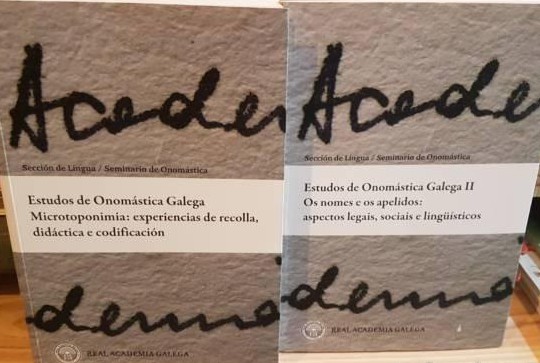 Acade
Sección de Lingua / Seminario de Onomástica
Estudos de Onomástica Galega
Microtoponimia: experiencias de recolla,
didáctica e codificación
demia
REAL ACADEMIA GALEGA
Acade
Sección de Lingua / Seminario de Onomástica
Estudos de Onomástica Galega II
Os nomes e os apelidos:
aspectos legais, sociais e lingüísticos
demia
REAL ACADEMIA GALEGA